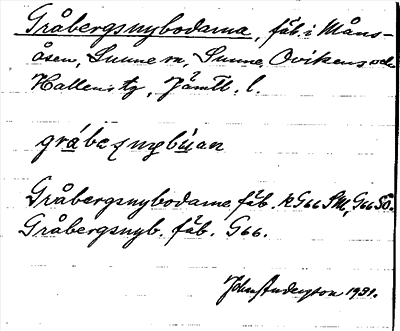 Gråbergsnybodarna, fäb. i Måns-
åsen, Sunne sn, Sunne, Ovikens och
Hallens tg, Jämtl. l.
gråbeꝛnybu̇an
Gråbergsnybodarne, fäb. kG66 SM, G66 SO.
Gråbergsnyb. fäb. G66.
John Anderson 1931.